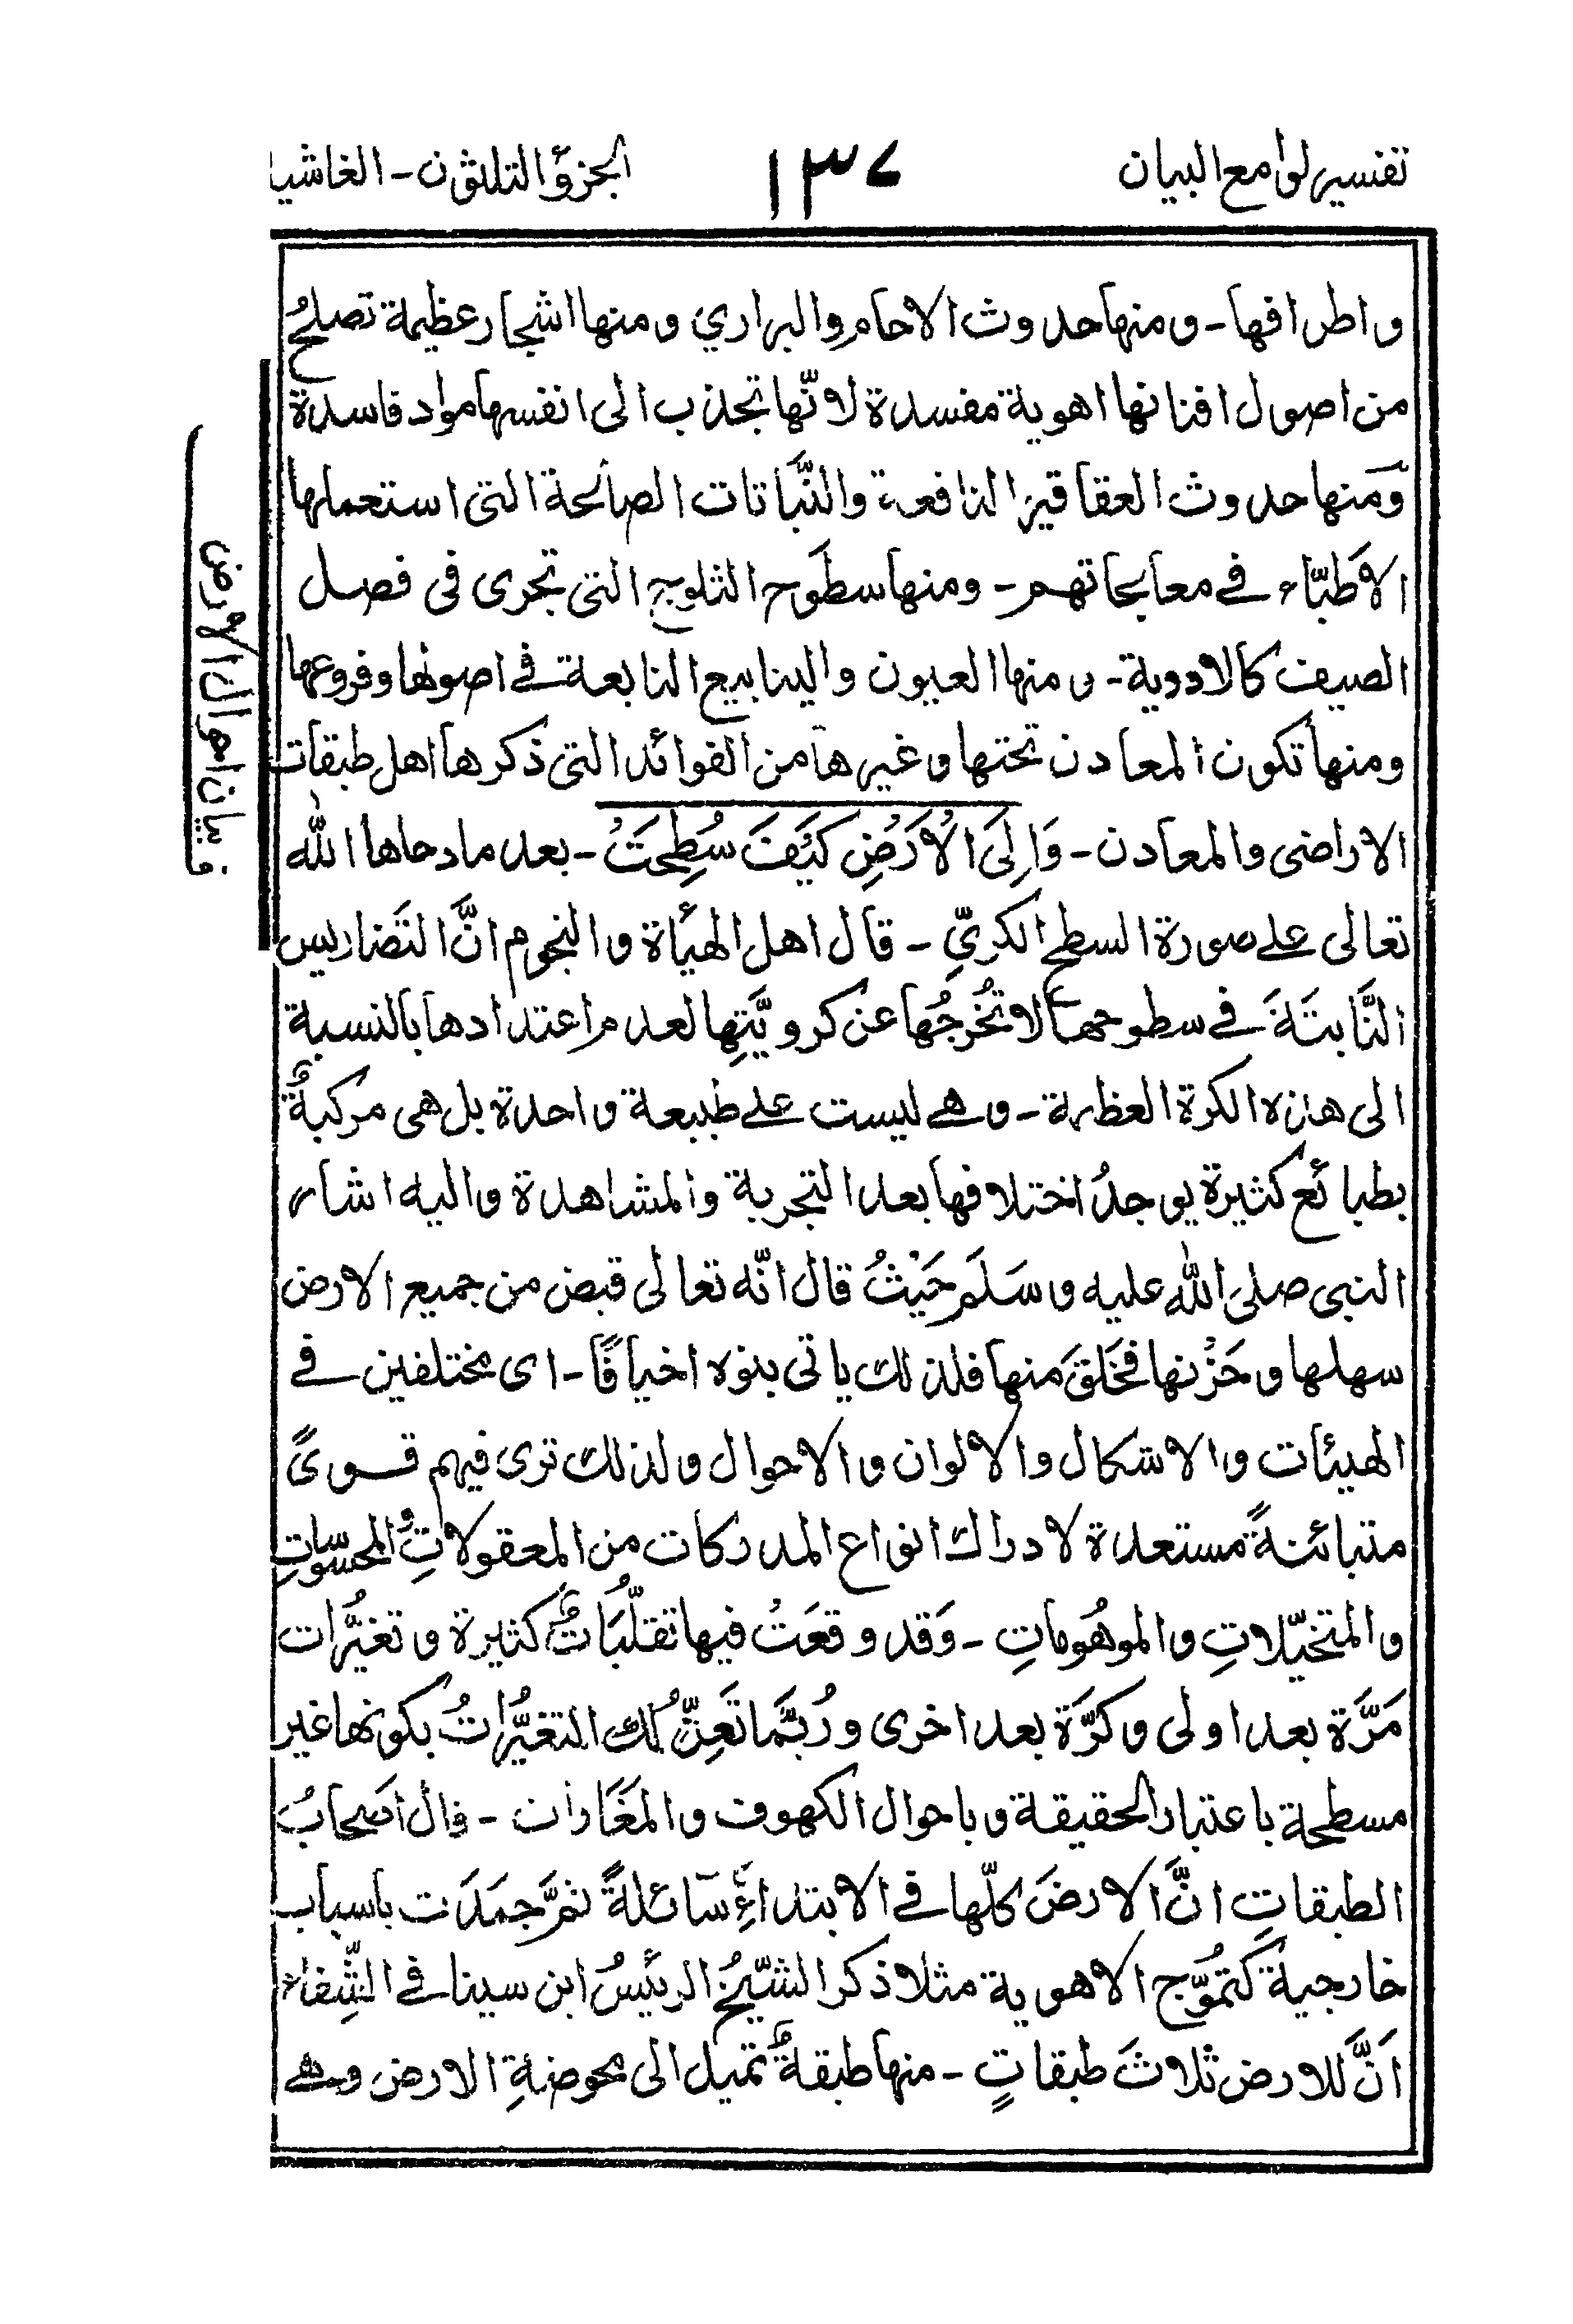 تفسير لوامع البيان ١٣٧ الجزؤ الثلثون - الغاشيا
واطرافها - ومنها حدوث الاجام والبراري ومنها اشجار عظيمة تصلحُ
من اصول افنانها اهوية مفسدة لانّها تجذب الى انفسها مواد فاسدة
وَمنها حدوث العقاقير النافعة والنَّباتات الصالحة التى استعملها
الاَطبّاء فے معالجاتهم - ومنها سطَوح الثلوج التى تجرى فى فصل
الصيف كالاودية - ومنها العيون والينابيع النابعة فے اصولها وفروعها
ومنها تكون المعادن تحتها وغيرها من الفوائد التى ذكرها اهل طبقات
الاراضى والمعادن - وَاِلَى الْاَرْضِ كَيْفَ سُطِحَتْ - بعد ما دحاها اللّٰه
تعالى علے صورة السطح الكريِّ - قال اهل الهيأة والنجوم انَّ التَضاريس
النَّابتَةَ فے سطوحها لا تُخْرجُها عن كرويَّتِها لعدم اعتدادها بالنسبة
الى هذه الكرة العظيمة - وهے ليست علے طبيعة واحدة بل هى مركبةٌ
بطبائع كثيرة يوجدُ اختلافها بعد التجربة والمشاهدة واليه اشار
النبى صلىَ اللّٰه عليه وسَلَم حَيْثُ قال انّه تعالى قبض من جميع الارض
سهلها وحَزْنها فخَلقَ منها فلذلك ياتى بنوه اخيافًا - اى مختلفين فے
الهيئات والاشكال والالوان والاحوال ولذلك ترى فيهم قوىً
متبائنةً مستعدة لادراك انواع المدركات من المعقولاتِ والمحسوساتِ
والمتخيّلاتِ والموهُوماتِ - وَقد وقعَتْ فيها تقلّبَاتٌ كثيرة وتغيُّرات
مَرَّة بعد اولى وكرَّة بعد اخرى ورُبَّما تَعِنّ لك التغيُّراتُ بكونها غير
مسطحة باعتبار الحقيقة وباحوال الكهوف والمَغَارات - قال اصحابُ
الطبقاتِ انَّ الارضَ كلّها فے الابتداءِ سَائلةً ثمَّ جمَدَت باسباب
خارجية كتموُّج الاهوية مثلا ذكر الشّيخُ الرئيسُ ابن سينا فے الشِّفاء
اَنَّ للارض ثلاثَ طبقاتٍ - منها طبقةٌ تميل الى محوضةِ الارض وهے
ف بيان اهوال الارض